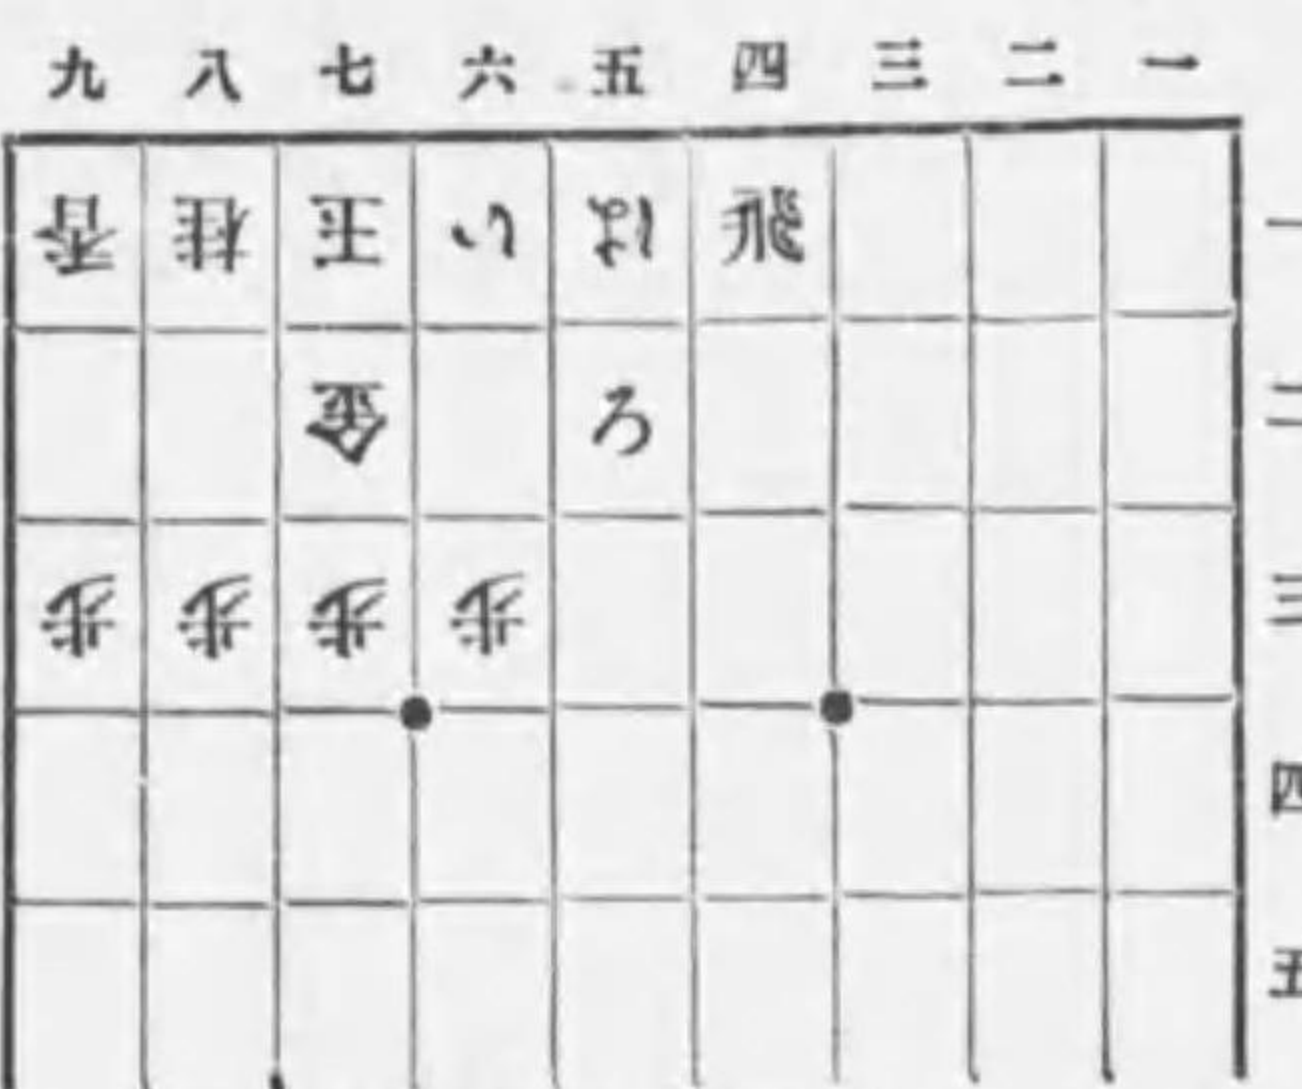 九八七六五四三二一
香桂王いは飛 一
金ろ 二
歩歩歩歩 三
四
五